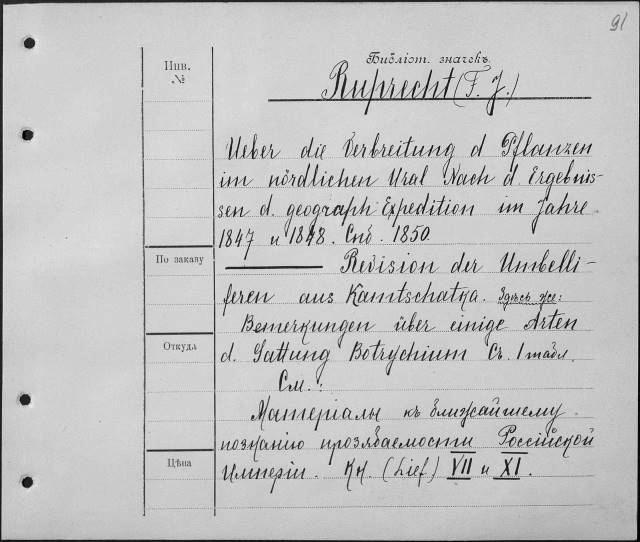 91
Инв.
№
Библіот. значекъ
Ruprecht (F. J.)
Ueber die Verbreitung d Pflanzen
im nördlichen Ural Nach d. Ergebnis-
sen d. geograph Expedition im Jahre
1847 и 1848. Спб. 1850.
По заказу
Revision der Umbelli-
feren aus Kamtschatka. Здѣсь же:
Bemerkungen über einige Arten
Откуда
d. Gattung Botrychium Съ 1 табл.
См.:
Матеріалы къ ближайшему
познанію прозябаемости Россійской
Цѣна
Имперіи. Кн. (Lief) VII и XI.